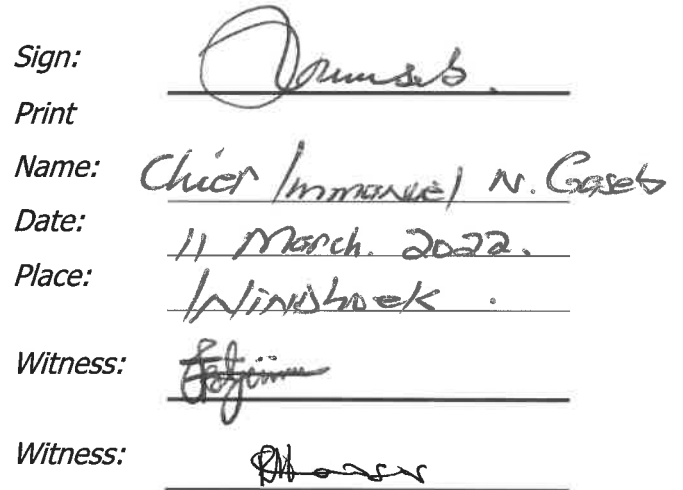 Sign:
Print
Name: Chief Immanuel N. Gaseb
Date: 11 March. 2022.
Place: Windhoek .
Witness:
Witness: